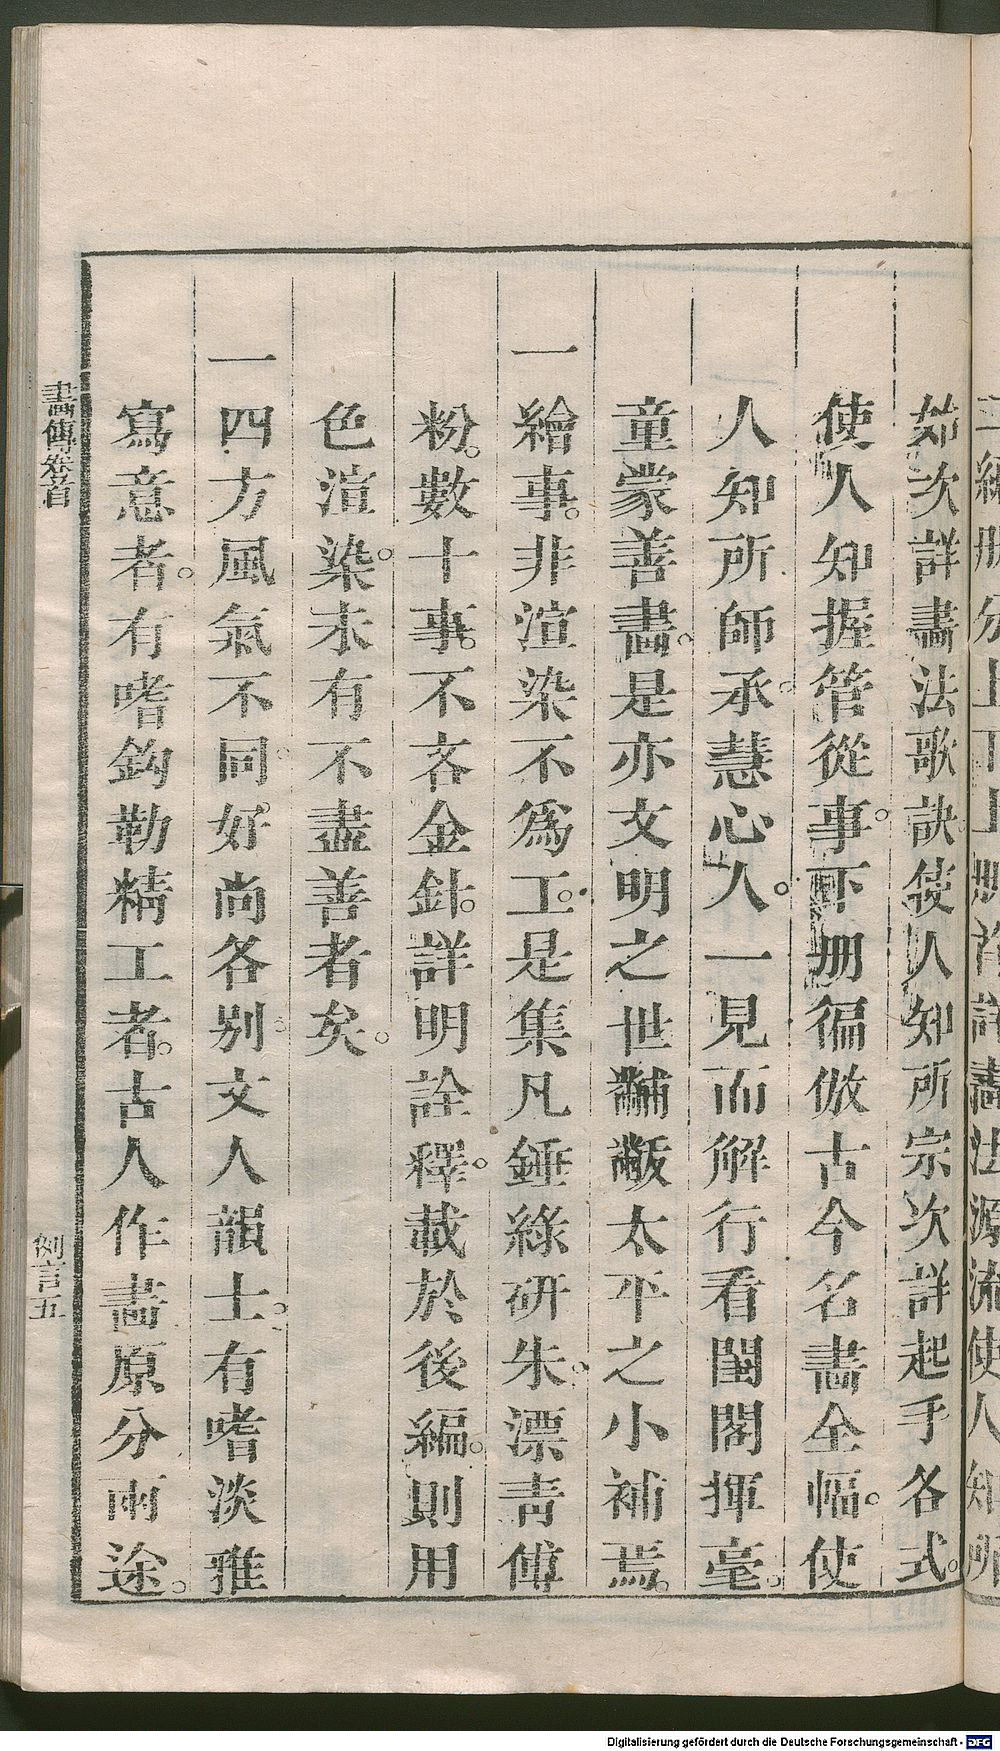 始次詳畫法歌訣使人知所宗次詳起手各式。
使人知握管從事。下册徧倣古今名畫全幅。使
人知所師承。慧心人。一見而解行看閨閣揮毫。
童蒙善畫。是亦文明之世黼黻太平之小補焉。
一繪事。非渲染不為工。是集凡錘綠研朱。漂靑傅
粉。數十事。不吝金針。詳明詮釋。載於後編。則用
色渲染。未有不盡善者矣。
一四方風氣不同。好尚各别。文人韻士。有嗜淡雅
寫意者。有嗜鈎勒精工者。古人作畫原分兩途。
畫傳卷首
例言五
Digitalisierung gefördert durch die Deutsche Forschungsgemeinschaft - DFG